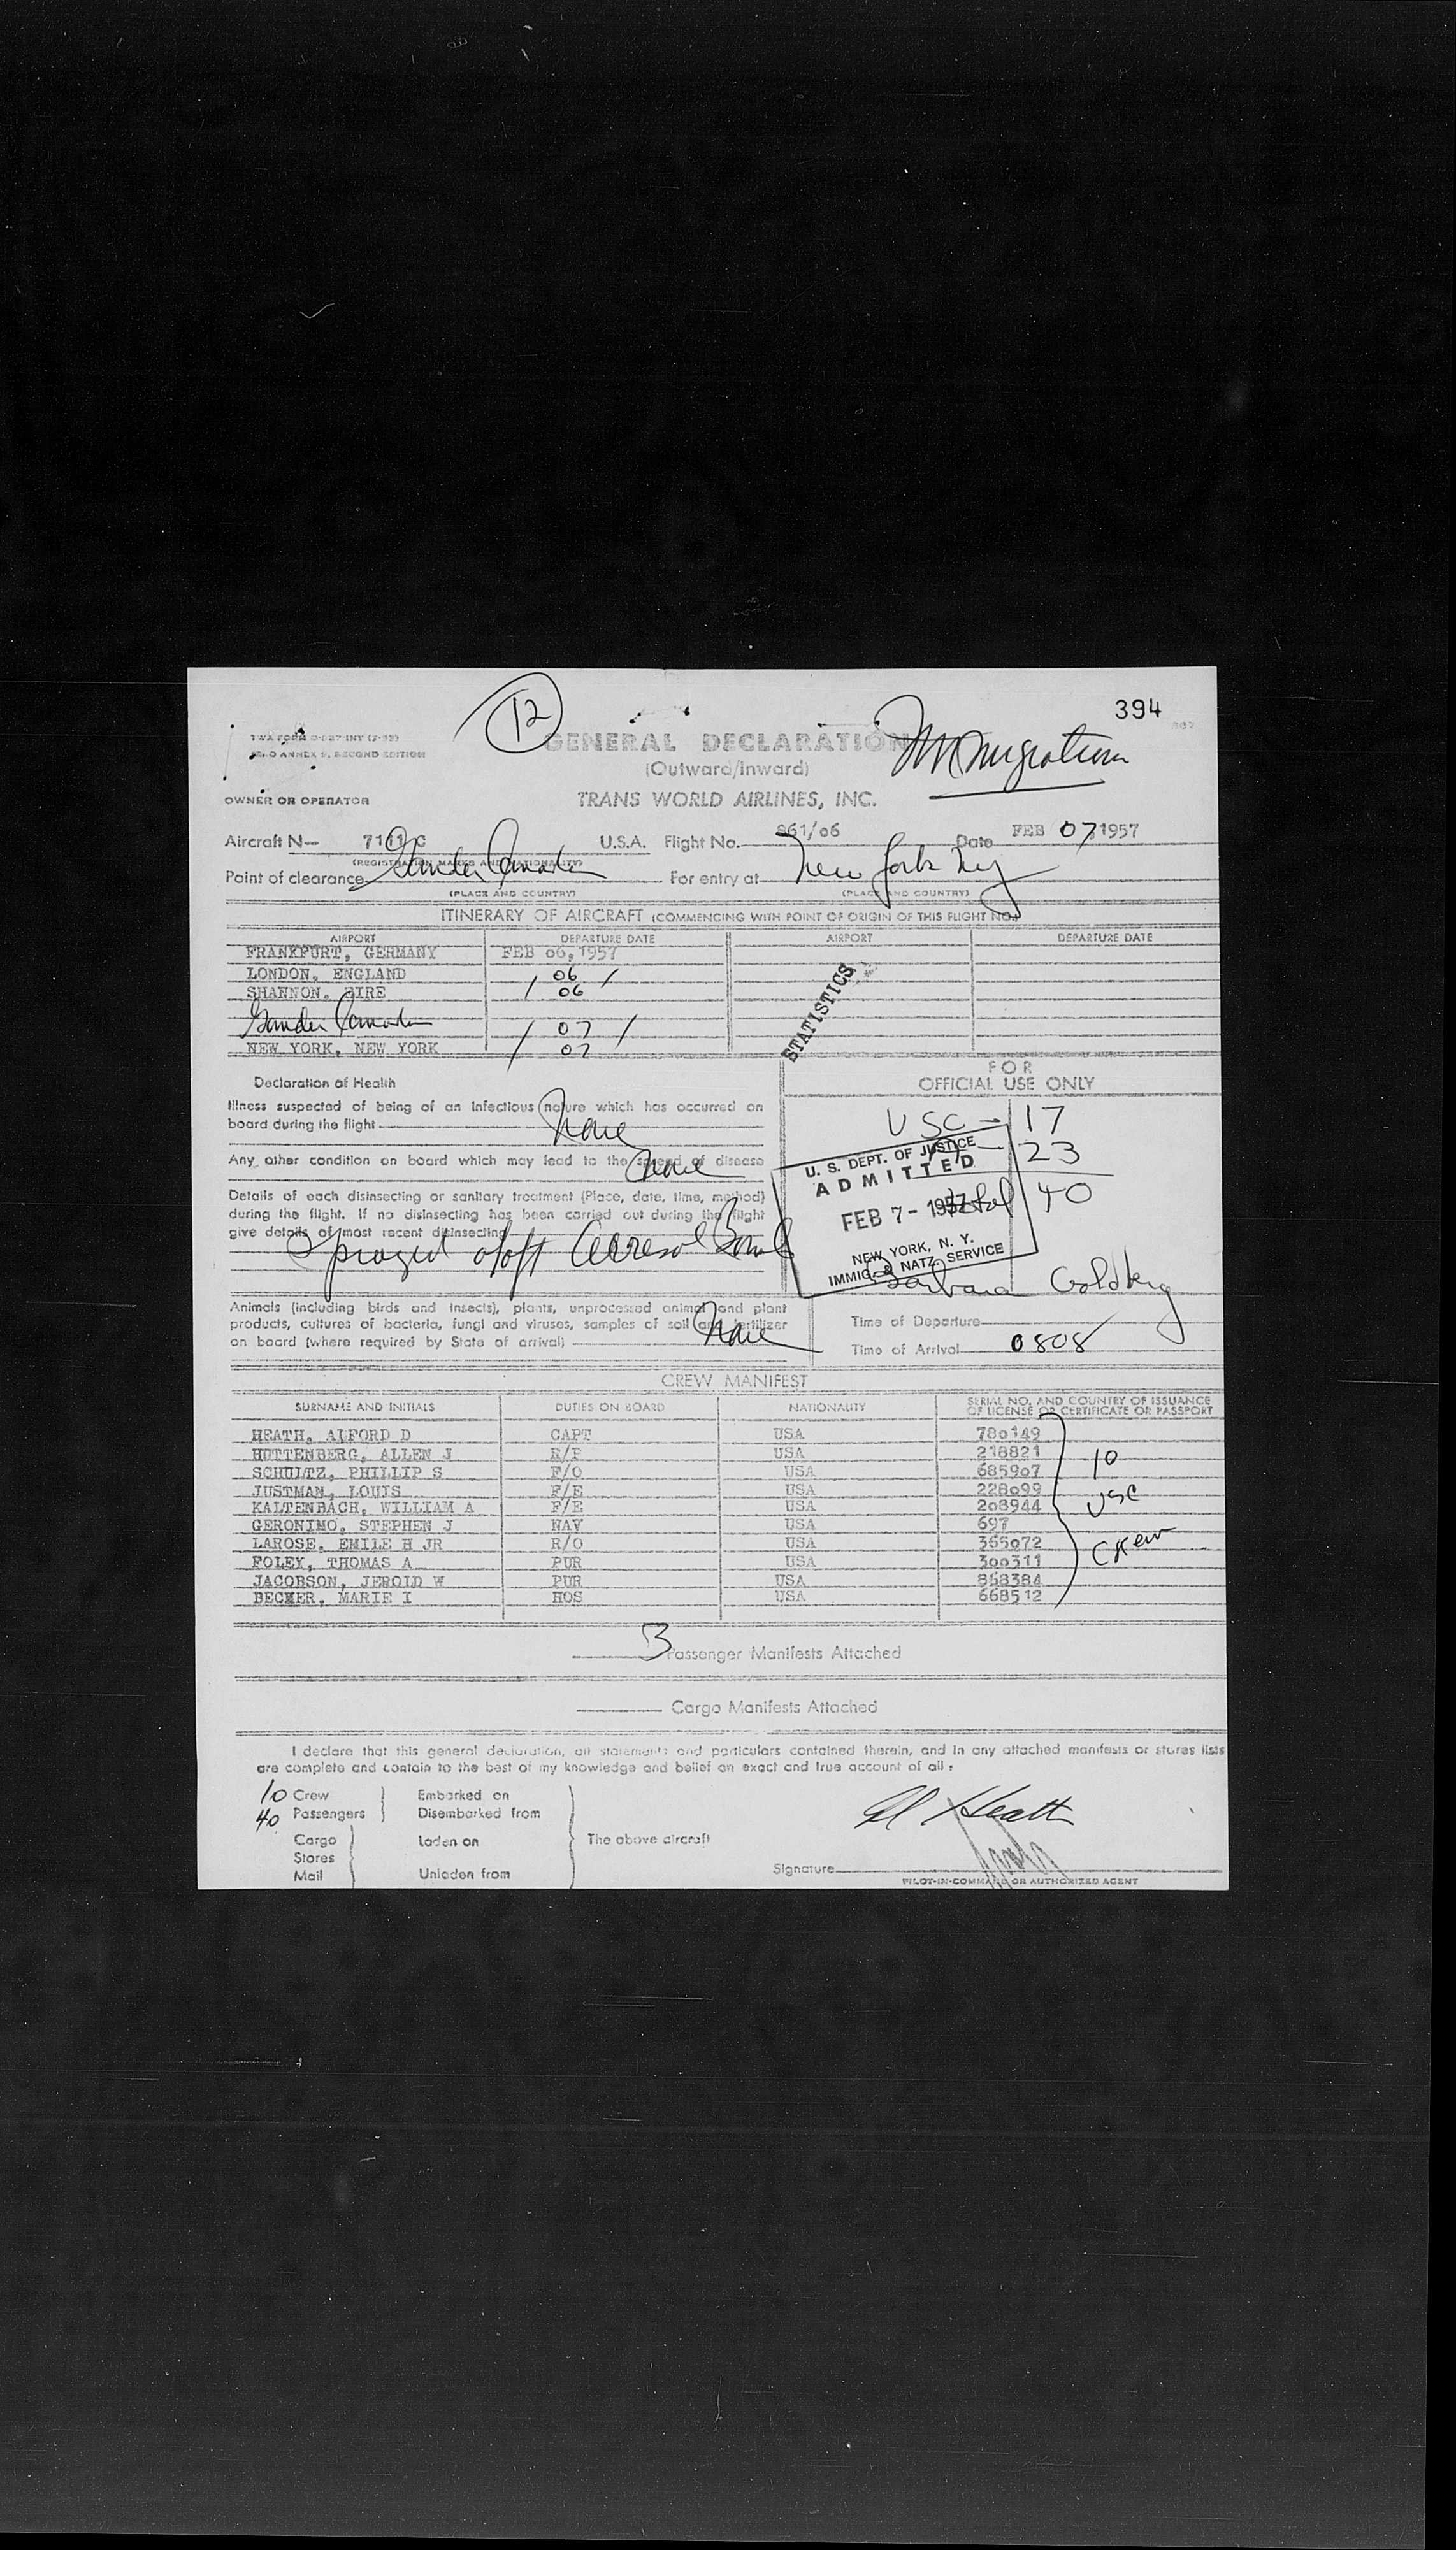 12
394
TWA FORM
ANNEX 9, SECOND EDITION
GENERAL DECLARATION
Immigration
(Outward/Inward)
OWNER OR OPERATOR
TRANS WORLD AIRLINES, INC.
Aircraft N— C U.S.A. Flight No. 861/06 Date FEB 07, 1957
(REGISTRATION MARKS AND NATIONALITY)
Point of clearance Gander Canada For entry at New York NY
(PLACE AND COUNTRY) (PLACE AND COUNTRY)
ITINERARY OF AIRCRAFT (COMMENCING WITH POINT OF ORIGIN OF THIS FLIGHT NO.)
AIRPORT DEPARTURE DATE AIRPORT DEPARTURE DATE
FRANKFURT, GERMANY FEB 06, 1957
LONDON, ENGLAND 06
SHANNON, EIRE / 06 /
Gander Canada 07 /
NEW YORK, NEW YORK / 07
STATISTICS
Declaration of Health
Illness suspected of being of an infectious nature which has occurred on
board during the flight None
Any other condition on board which may lead to the spread of disease
None
Details of each disinsecting or sanitary treatment (Place, date, time, method)
during the flight. If no disinsecting has been carried out during the flight
give details of most recent disinsecting
Sprayed aloft Aerosol Bomb
FOR
OFFICIAL USE ONLY
USC - 17
23
Total 40
U. S. DEPT. OF JUSTICE
ADMITTED
FEB 7 - 1957
NEW YORK, N. Y.
IMMIG. & NATZ. SERVICE
Barbara Goldberg
Animals (including birds and insects), plants, unprocessed animal and plant
products, cultures of bacteria, fungi and viruses, samples of soil and fertilizer
on board (where required by State of arrival) None
Time of Departure
Time of Arrival 0808
CREW MANIFEST
SURNAME AND INITIALS DUTIES ON BOARD NATIONALITY SERIAL NO. AND COUNTRY OF ISSUANCE
OF LICENSE OR CERTIFICATE OR PASSPORT
HEATH, ALFORD D CAPT USA 780149
HUTTENBERG, ALLEN J R/P USA 218821
SCHULTZ, PHILLIP S F/O USA 685907
JUSTMAN, LOUIS F/E USA 228099
KALTENBACH, WILLIAM A F/E USA 208944
GERONIMO, STEPHEN J NAV USA 697
LAROSE, EMILE H JR R/O USA 365072
FOLEY, THOMAS A PUR USA 300311
JACOBSON, JEROLD W PUR USA 868384
BECKER, MARIE I HOS USA 668512
10
USC
Crew
3 Passenger Manifests Attached
Cargo Manifests Attached
I declare that this general declaration, all statements and particulars contained therein, and in any attached manifests or stores lists
are complete and contain to the best of my knowledge and belief an exact and true account of all:
10 Crew Embarked on
40 Passengers Disembarked from
Cargo Laden on The above aircraft
Stores
Mail Unladen from
Al Heath
Signature
PILOT-IN-COMMAND OR AUTHORIZED AGENT